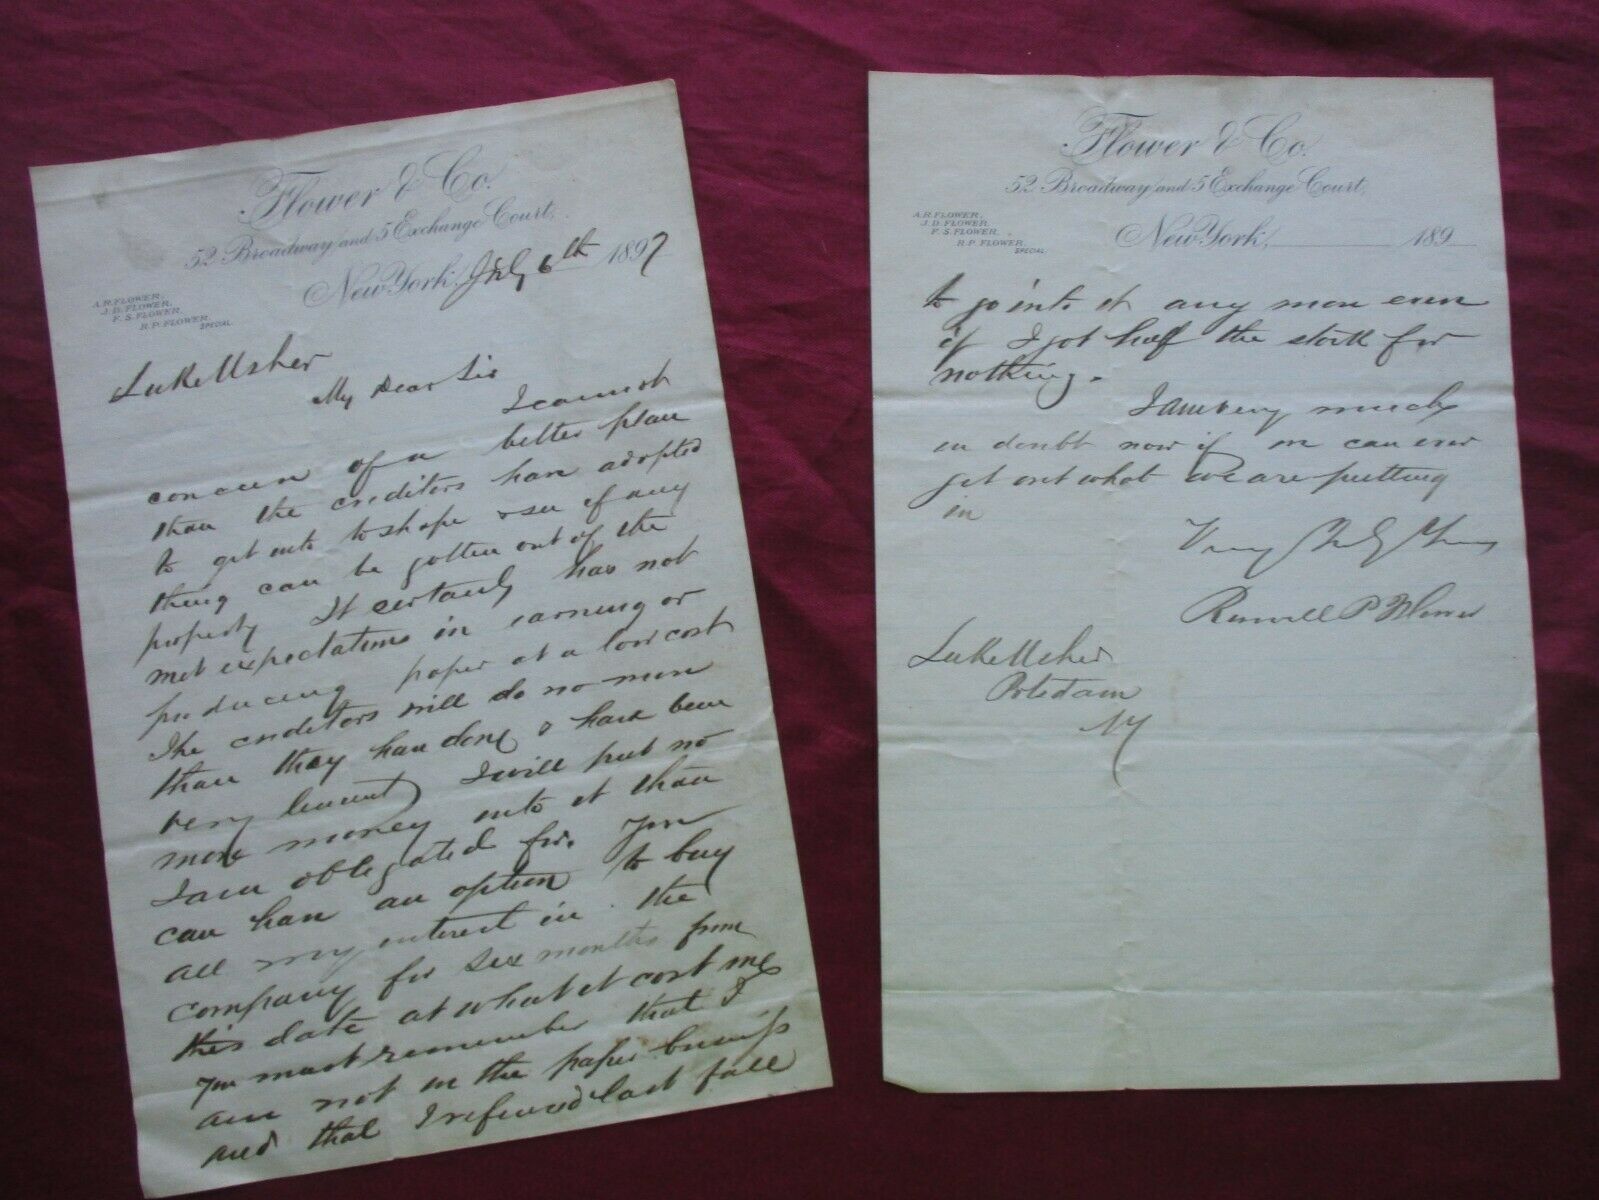 Flower & Co.
52 Broadway and 5 Exchange Court,
A.R. FLOWER,
J.D. FLOWER,
F.S. FLOWER,
R.P. FLOWER,
SPECIAL
New York, July 6th 1897
Luke Usher
My Dear Sir
I cannot
conceive of a better plan
than the creditors have adopted
to get into to shape & see if any
thing can be gotten out of the
property It certainly has not
met expectations in earning or
producing paper at a low cost
The creditors will do no more
than they have done & have been
very lenient I will put no
more money into it than
I am obligated for. You
can have an option to buy
all my interest in the
company for six months from
this date at what it cost me
You must remember that I
am not in the paper business
and that I refused last fall
Flower & Co.
52 Broadway and 5 Exchange Court,
A.R. FLOWER,
J.D. FLOWER,
F.S. FLOWER,
R.P. FLOWER,
SPECIAL
New York, 189
to go into it any more even
if I got half the stock for
nothing.
I am very much
in doubt now if we can ever
get out what we are putting
in
Very Truly Yours
Roswell P Flower
Luke Usher
Potsdam
NY